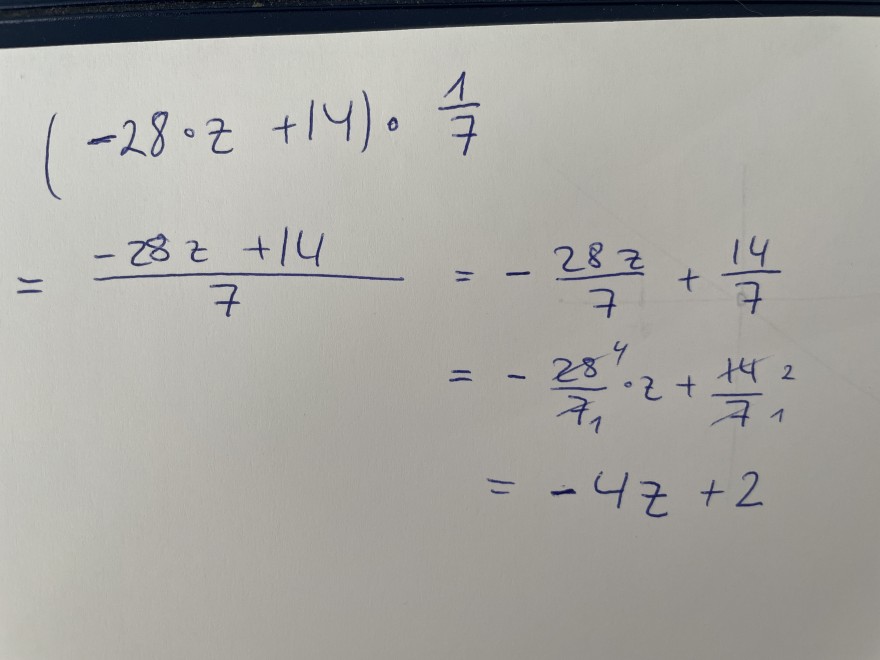 (-28·z +14)· 1/7
= (-28z +14)/7 = - 28z/7 + 14/7
= - 28⁴/7₁ ·z + 14²/7₁
= -4z +2